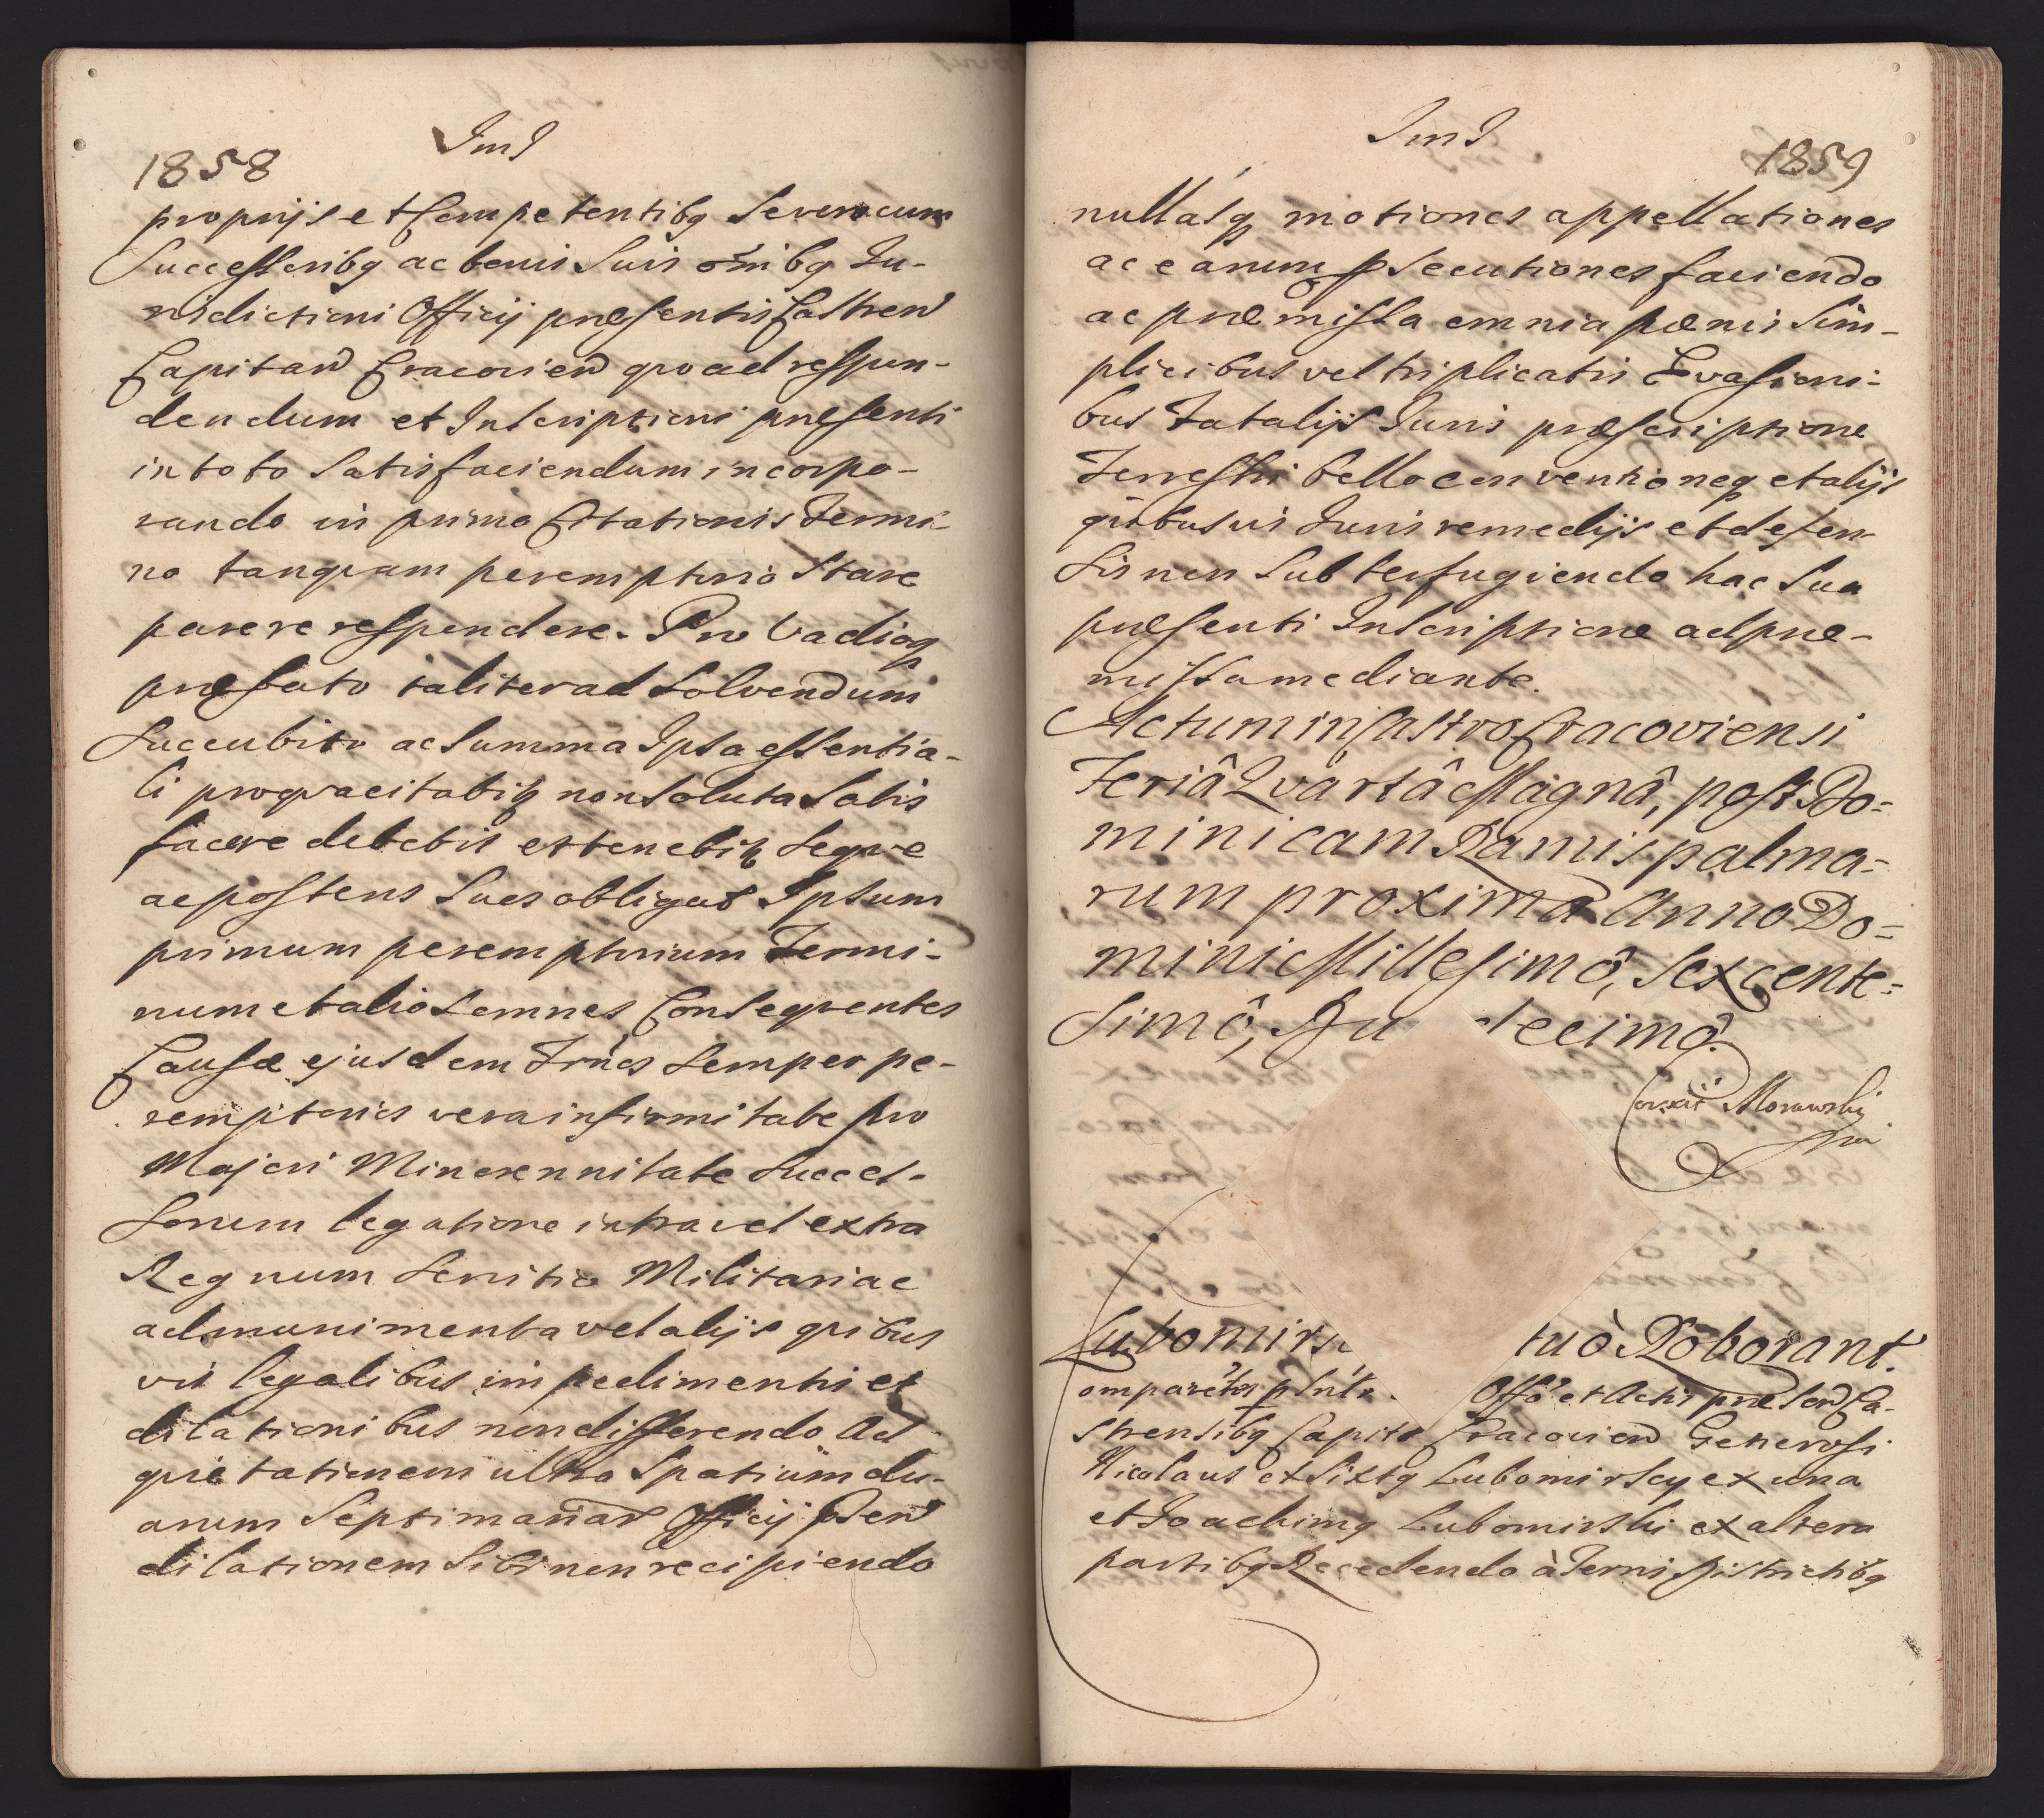 1858
ImI
proprijs et Competentibq Severocum
Successoribq ac bonis Suis omibq Ju-
risdictioni Officij præsentis Castren
Capitan Cracovien quoad respon-
dendum et Inscriptioni præsenti
in toto Satisfaciendum incorpo-
rando in primo Citationis Termi-
no tanquam peremptorio Stare
parere respondere. Pro Vadioq
præfato taliter ad Solvendum
Succubito ac Summa Ipsa essentia-
li pro qvacitabitq non Soluta Satis
facere debebit et tenebitq Seqve
ac posteros Suos obligat Ipsum
primum peremptorium Termi-
num et alios omnes Conseqventes
Causæ ejusdem Trnos Semper pe-
remptorios vera infirmitate pro
Majori Minorennitate Succes-
Sorum legatione intra vel extra
Regnum Servitio Militari ac
admunimenta vel alijs qvibus
vis legalibus impedimentis et
dilationibus non differendo Ad
qvietationem ultra Spatium du-
arum Septimanar Officij psen
dilationem Sibi non recipiendo
ImI
1859
nullasq motiones appellationes
ac earum psecutiones faciendo
ac præmissa omnia pænis Sim-
plicibus vel triplicatis Evasioni-
bus Fatalijs Juris præscriptione
Terrestri bello conventioneq et alijs
qvibusvis Juris remedijs et defen-
Sis non Subterfugiendo hac Sua
præsenti Inscriptione ad præ-
missa mediante.
Actum in Castro Cracoviensi
Feriâ Qvartâ Magnâ, post Do-
minicam Ramis palma-
rum proxima Anno Do-
mini Millesimô, Sexcente-
Simô, Du decimô.
Morawski
Lubomirs tuò Roborant.
omparetes Offo et Actis præsen Ca-
strensibq Capita Cracovien Generosi
Nicolaus et Sixtq Lubomirscy ex una
et Joachimq Lubomirski ex altera
partibq Recedendo à Terris